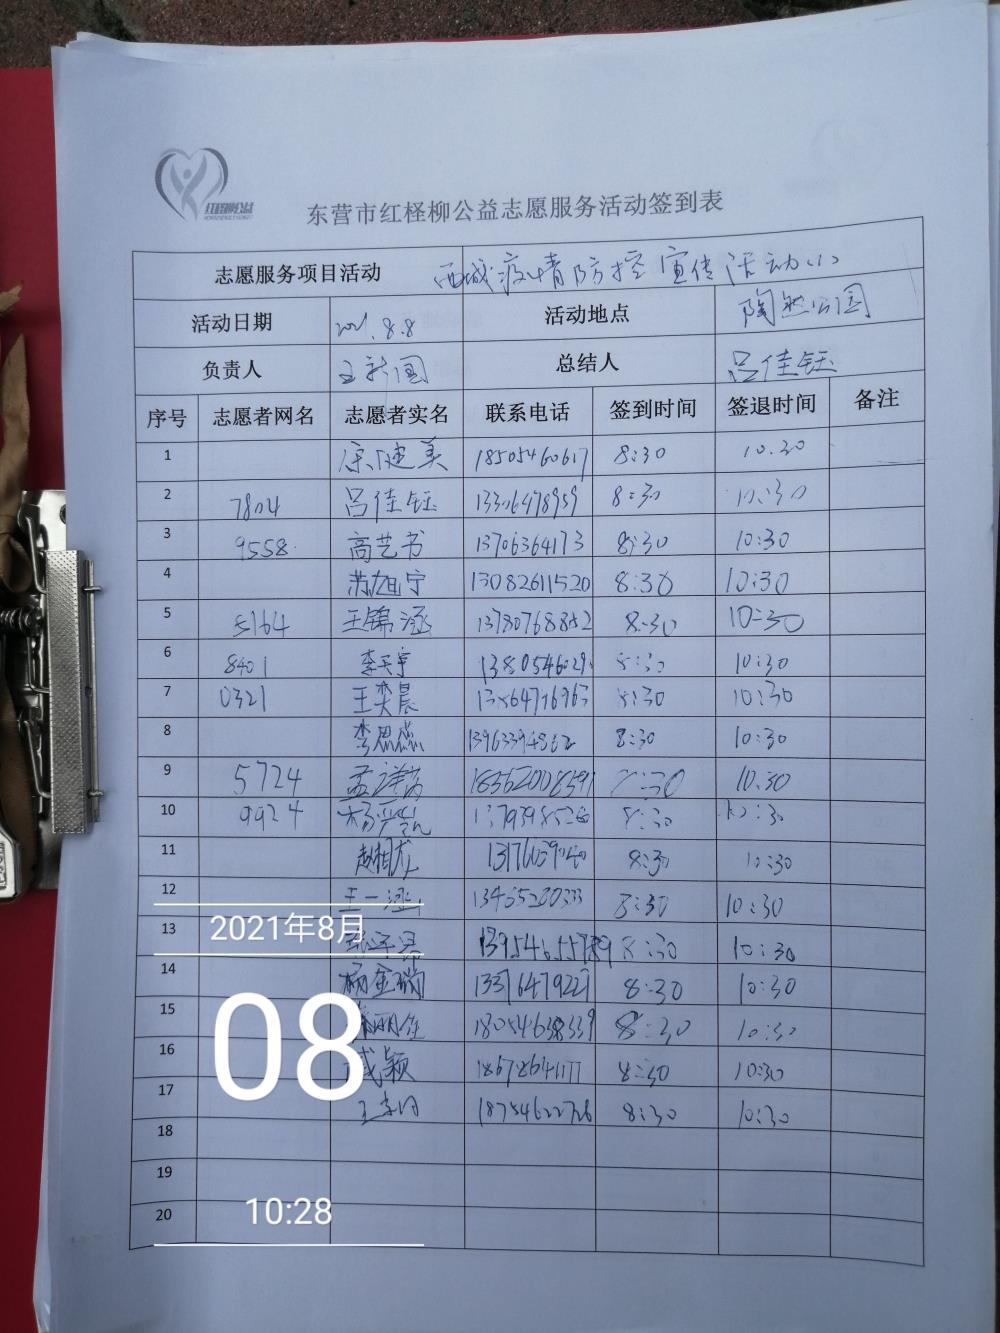 红柽柳公益
东营市红柽柳公益志愿服务活动签到表
志愿服务项目活动 西城疫情防控宣传活动(1)
活动日期 2021.8.8 活动地点 陶然公园
负责人 王新国 总结人 吕佳钰
序号 志愿者网名 志愿者实名 联系电话 签到时间 签退时间 备注
1 健美 18505460617 8:30 10.30
2 7804 吕佳钰 13306478959 8:30 10:30
3 9558 高艺书 13706364173 8:30 10:30
4 13082611520 8:30 10:30
5 5164 王锦涵 13780768852 8:30 10:30
6 8401 李天宇 8:30 10:30
7 0321 王奕晨 8:30 10:30
8 李思蕊 8:30 10:30
9 5724 孟 8:30 10:30
10 9924 杨 8:30 10:30
11 赵相龙 8:30 10:30
12 王一涵 13465280333 8:30 10:30
13 8:30 10:30
14 杨金瑞 8:30 10:30
15 丽 18054638339 8:30 10:30
16 颖 8:30 10:30
17 王 18754622726 8:30 10:30
18
19
20
2021年8月
08
10:28